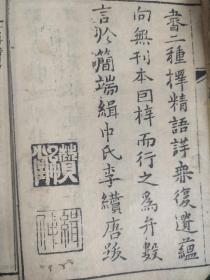 書二種擇精語詳無復遺蘊
向無刊本因梓而行之爲弁數
言於簡端緝巿氏李纘唐跋